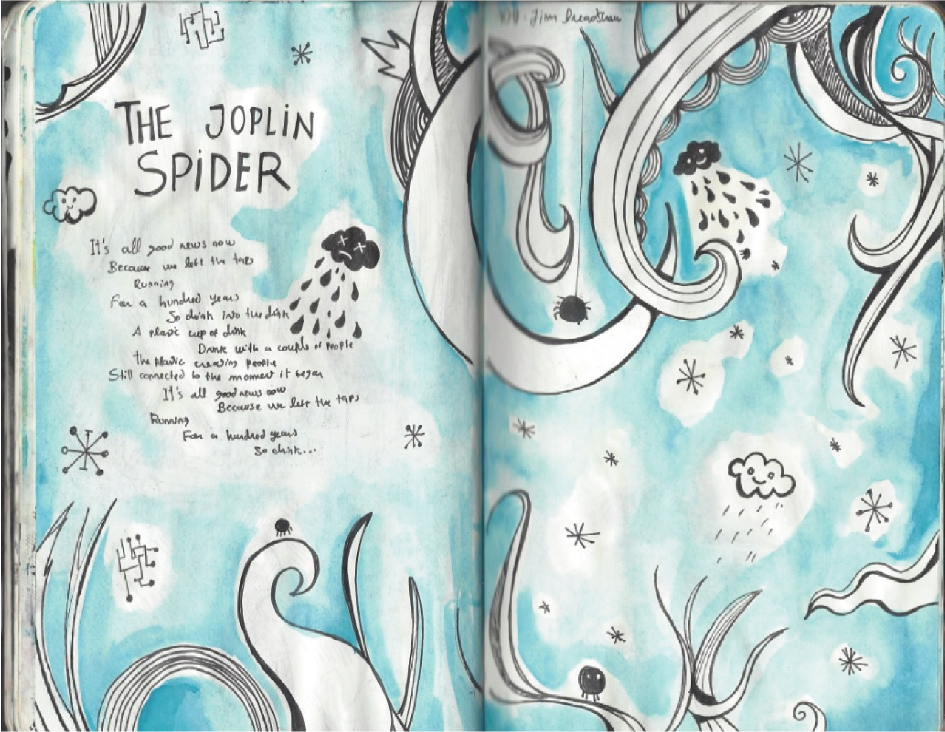 THE JOPLIN
SPIDER
It's all good news now
Because we left the taps
Running
For a hundred years
So drink into the drink
A plasic cup of drink
Drink with a couple of people
the plastic creating people
Still connected to the moment it began
It's all good news now
Because we left the taps
Running
For a hundred years
So drink...
Jim